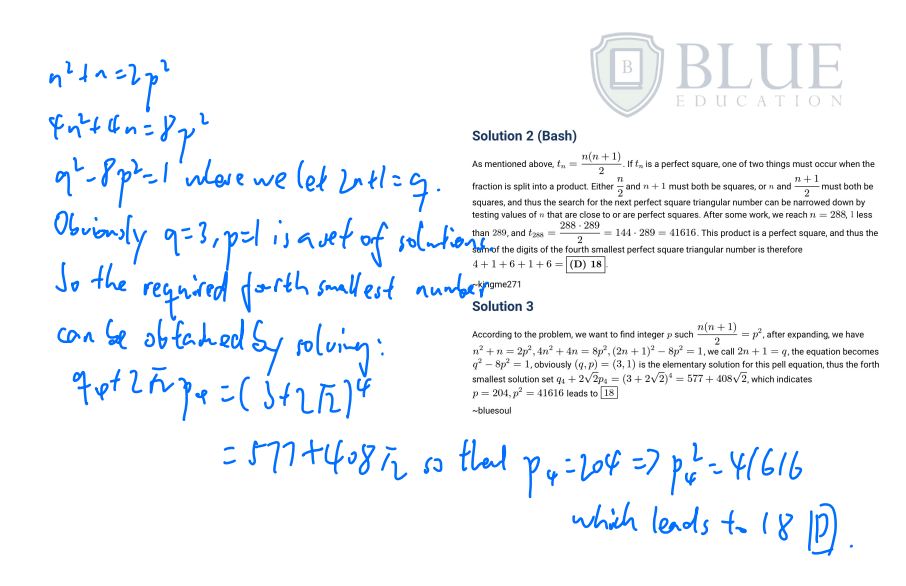 BLUE
EDUCATION
B
n²+n=2p²
4n²+4n=8p²
q²-8p²=1 where we let 2n+1=q.
Obviously q=3, p=1 is a set of solutions.
So the required fourth smallest number
can be obtained by solving:
q₄+2√2p₄=(3+2√2)⁴
=577+408√2 so that p₄=204 => p₄²=41616
which leads to 18 D.
Solution 2 (Bash)
As mentioned above, tₙ = n(n+1)/2. If tₙ is a perfect square, one of two things must occur when the
fraction is split into a product. Either n/2 and n + 1 must both be squares, or n and (n+1)/2 must both be
squares, and thus the search for the next perfect square triangular number can be narrowed down by
testing values of n that are close to or are perfect squares. After some work, we reach n = 288, 1 less
than 289, and t₂₈₈ = 288 · 289/2 = 144 · 289 = 41616. This product is a perfect square, and thus the
sum of the digits of the fourth smallest perfect square triangular number is therefore
4 + 1 + 6 + 1 + 6 = (D) 18.
~kingme271
Solution 3
According to the problem, we want to find integer p such n(n+1)/2 = p², after expanding, we have
n² + n = 2p², 4n² + 4n = 8p², (2n + 1)² − 8p² = 1, we call 2n + 1 = q, the equation becomes
q² − 8p² = 1, obviously (q, p) = (3, 1) is the elementary solution for this pell equation, thus the forth
smallest solution set q₄ + 2√2p₄ = (3 + 2√2)⁴ = 577 + 408√2, which indicates
p = 204, p² = 41616 leads to 18
~bluesoul